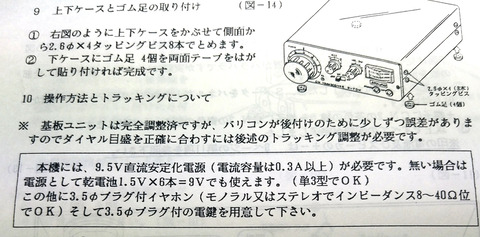 9 上下ケースとゴム足の取り付け (図-14)
① 右図のように上下ケースをかぶせて側面か
ら2.6φ×4タッピングビス8本でとめます。
② 下ケースにゴム足4個を両面テープをはが
して貼り付ければ完成です。
2.6φ×4(8本)
タッピングビス
ゴム足(4個)
10 操作方法とトラッキングについて
※ 基板ユニットは完全調整済ですが、バリコンが後付けのために少しずつ誤差がありま
すのでダイヤル目盛を正確に合わすには後述のトラッキング調整が必要です。
本機には、9.5V直流安定化電源(電流容量は0.3A以上)が必要です。無い場合は
電源として乾電池1.5V×6本=9Vでも使えます。(単3型でOK)
この他に3.5φプラグ付イヤホン(モノラル又はステレオでインピーダンス8~40Ω位
でOK)そして3.5φプラグ付の電鍵を用意して下さい。